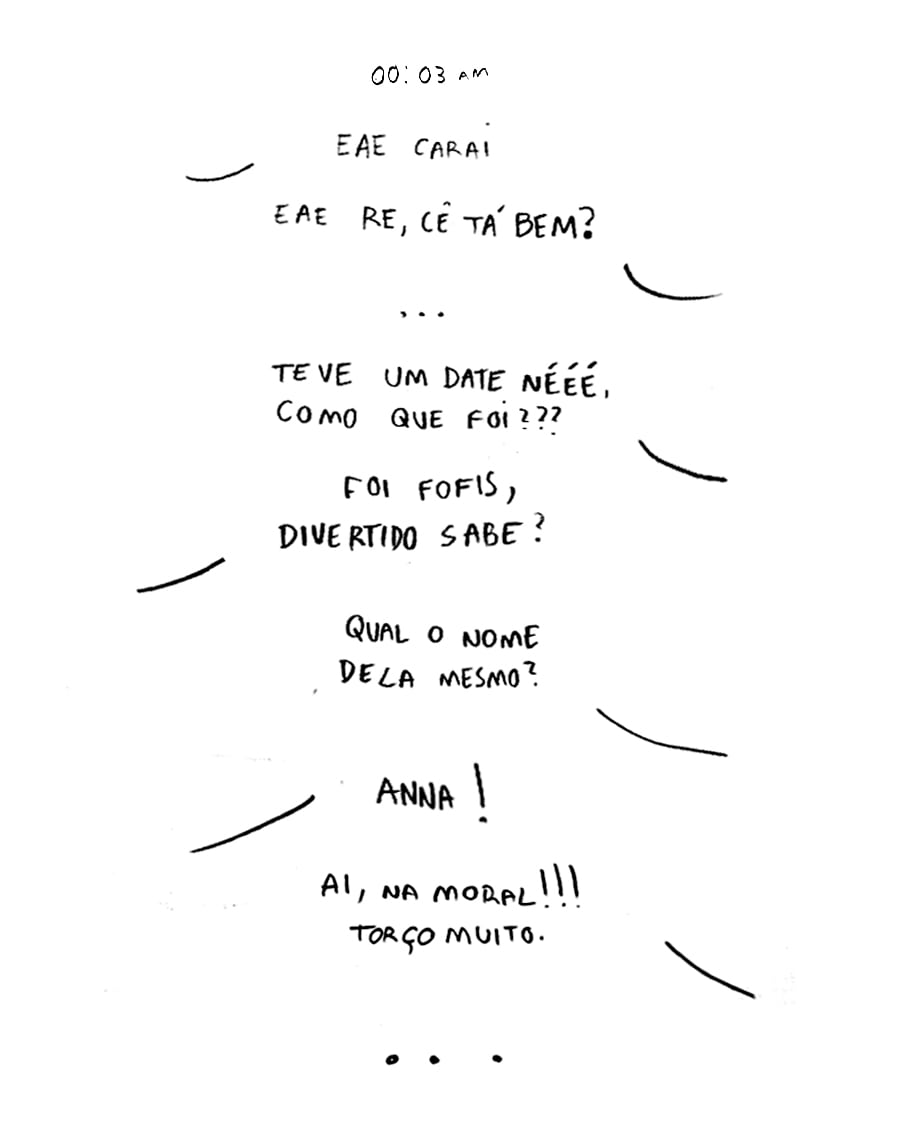 00:03 AM
EAE CARAI
EAE RE, CÊ TÁ BEM?
...
TEVE UM DATE NÉÉÉ,
COMO QUE FOI???
FOI FOFIS,
DIVERTIDO SABE?
QUAL O NOME
DELA MESMO?
ANNA!
AI, NA MORAL!!!
TORÇO MUITO.
...